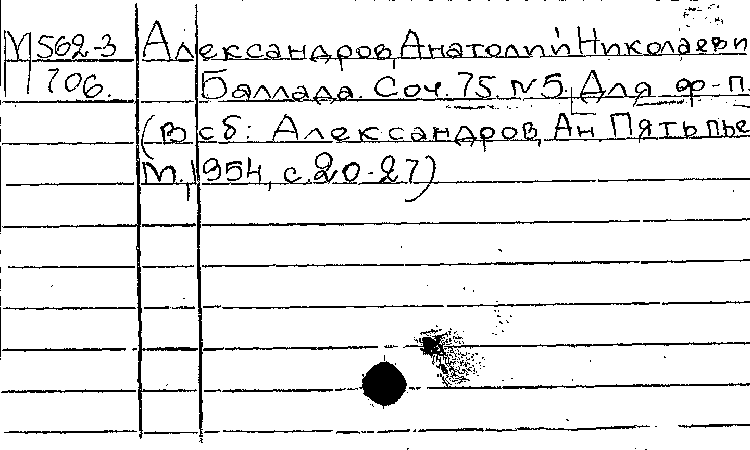 М 562-3 Александров, Анатолий Николаеви
706. Баллада. Соч. 75. N5. Для ф-п.
(В сб: Александров, Ан. Пять пье
М., 1954, с. 20-27)